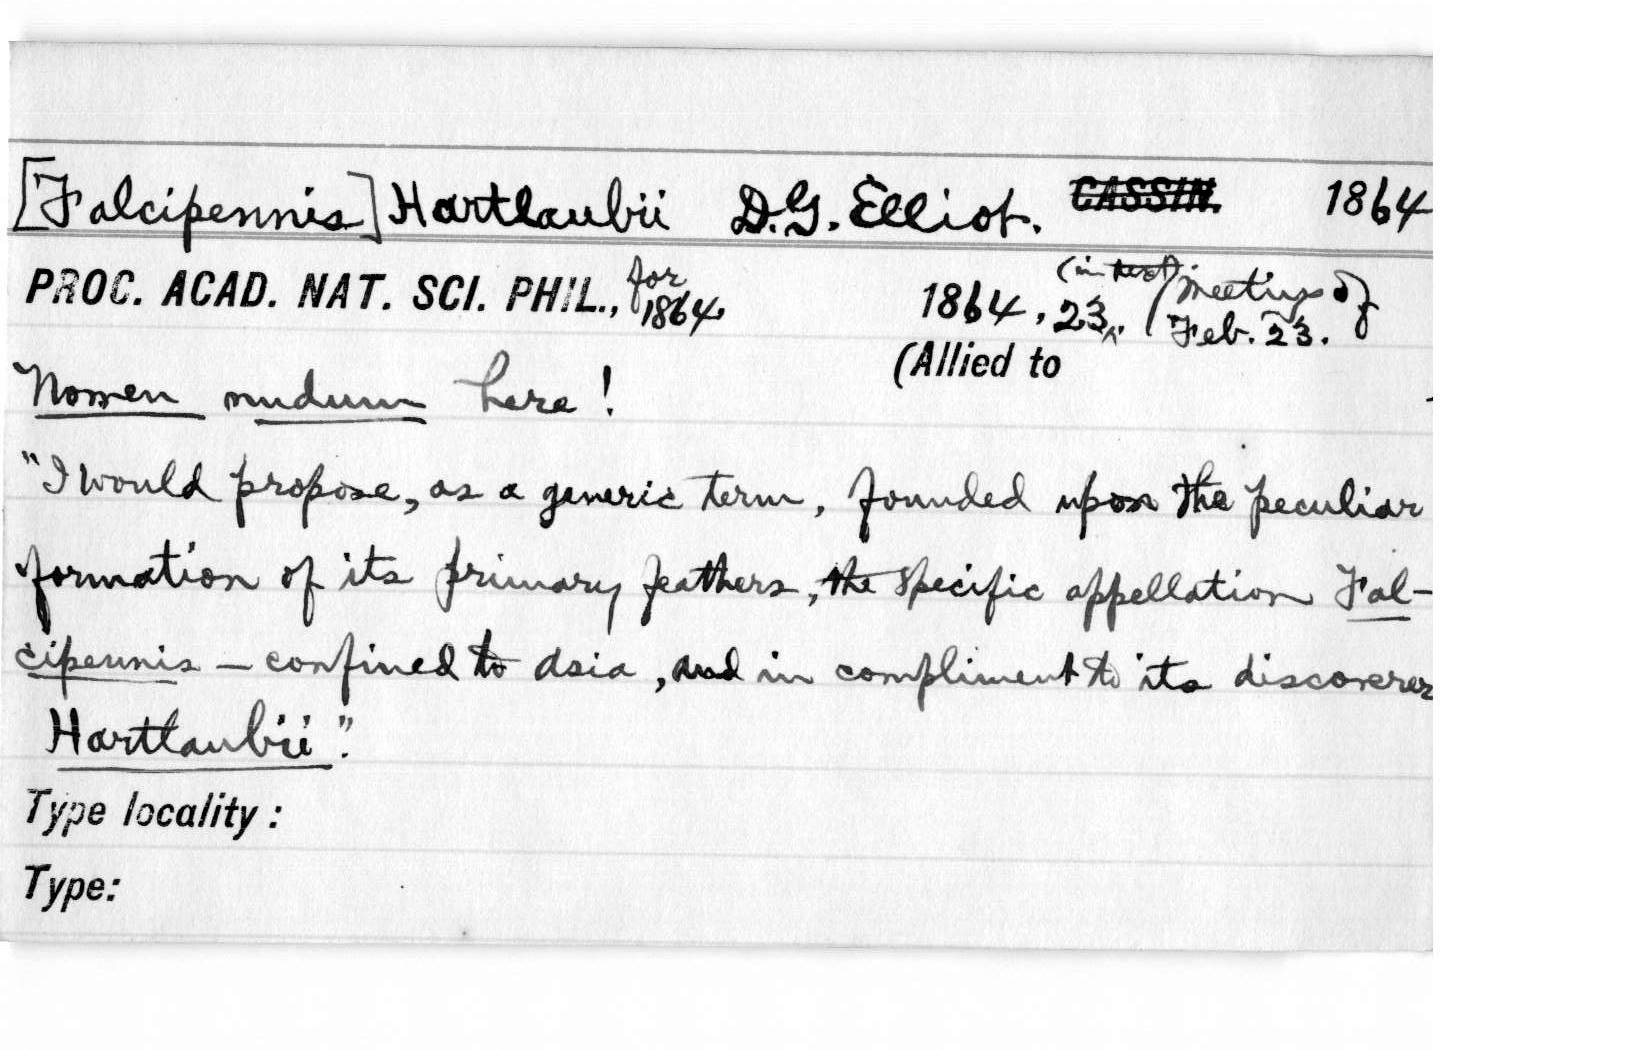 [Falcipennis] Hartlaubii D.G. Elliot. CASSIN. 1864
PROC. ACAD. NAT. SCI. PHIL., for 1864, 1864, 23, (in text) (Meeting of Feb. 23.)
(Allied to
Nomen nudum here!
"I would propose, as a generic term, founded upon the peculiar
formation of its primary feathers, the specific appellation Fal-
cipennis — confined to Asia, and in compliment to its discoverer
Hartlaubii".
Type locality:
Type: